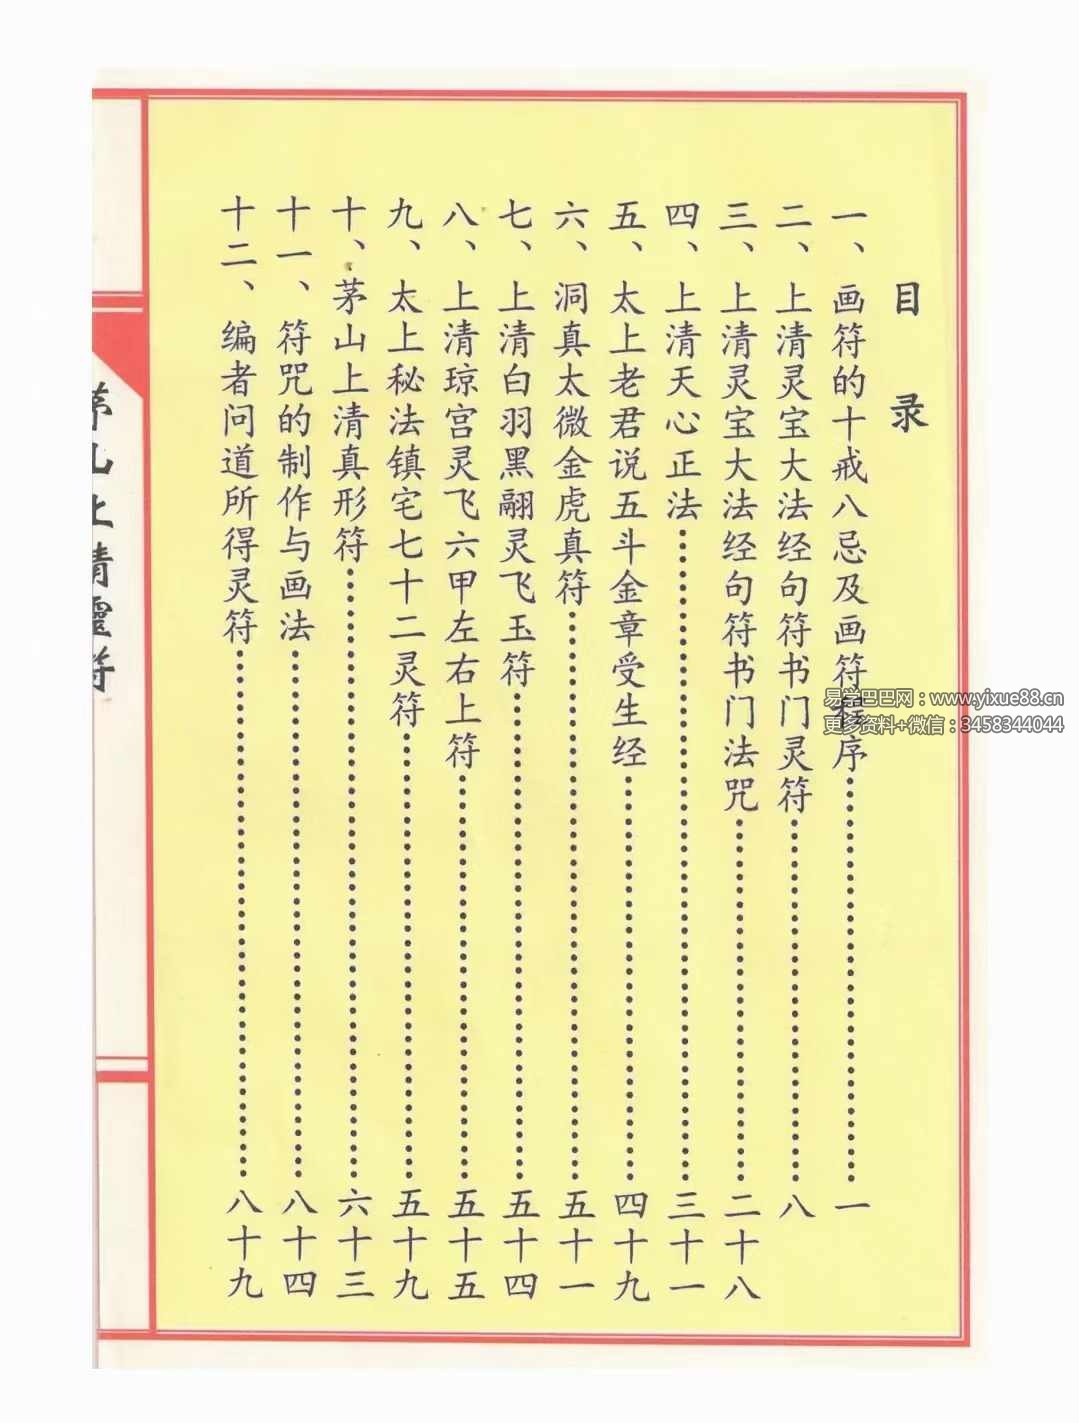 目录
一、画符的十戒八忌及画符程序……一
二、上清灵宝大法经句符书门灵符……八
三、上清灵宝大法经句符书门法咒……二十八
四、上清天心正法……三十一
五、太上老君说五斗金章受生经……四十九
六、洞真太微金虎真符……五十一
七、上清白羽黑翮灵飞玉符……五十四
八、上清琼宫灵飞六甲左右上符……五十五
九、太上秘法镇宅七十二灵符……五十九
十、茅山上清真形符……六十三
十一、符咒的制作与画法……八十四
十二、编者问道所得灵符……八十九
茅山上清靈符
易学巴巴网：www.yixue88.cn
更多资料+微信：3458344044